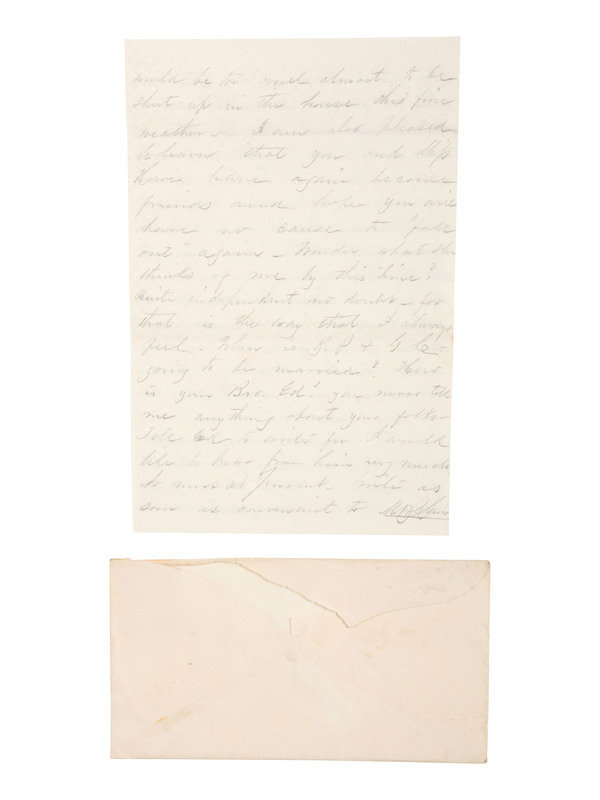 would be too cruel almost to be
shut up in the house this fine
weather. I am also pleased
to learn that you and Miss
Howe have again become
friends and hope you will
have no cause to "fall
out" again - Wonder what she
thinks of me by this time?
Quite independent no doubt - for
that is the way that I always
feel. When is S. P. & G. C.
going to be married? How
is your Bro. Ed? you never tell
me anything about your folks -
Tell Ed to write for I would
like to hear from him very much
No more at present. Write as
soon as convenient to